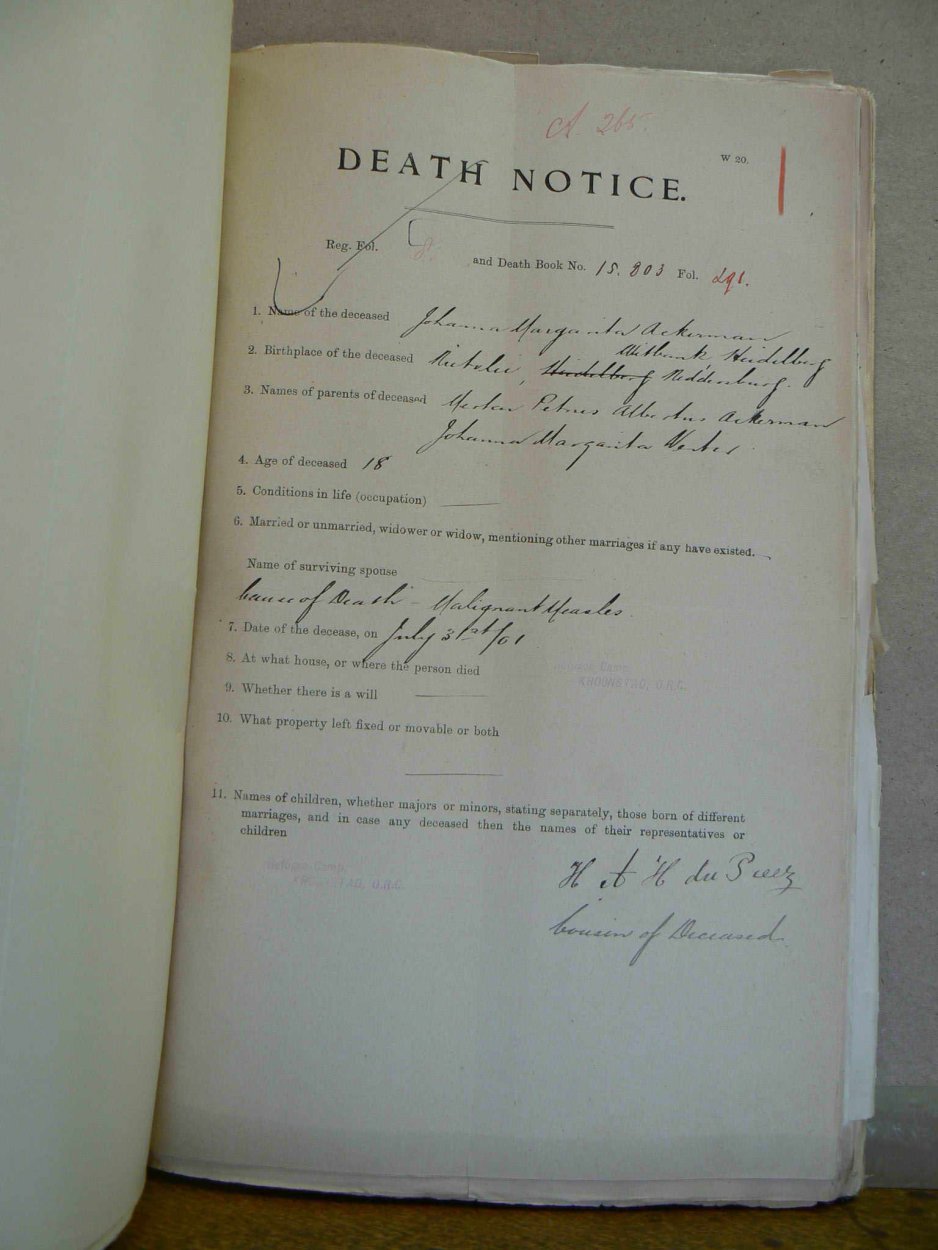 A. 265.
W 20.
DEATH NOTICE.
Reg. Fol. and Death Book No. 15.803 Fol. 291.
1. Name of the deceased Johanna Margarita Ackerman
Witbank Heidelberg
2. Birthplace of the deceased Rietvlei, Heidelberg Reddersburg.
3. Names of parents of deceased Petrus Albertus Ackerman
Johanna Margarita
4. Age of deceased 18
5. Conditions in life (occupation)
6. Married or unmarried, widower or widow, mentioning other marriages if any have existed.
Name of surviving spouse
Cause of Death - Malignant Measles.
7. Date of the decease, on July 31st/01
8. At what house, or where the person died
Refugee Camp,
KROONSTAD, O.R.C.
9. Whether there is a will
10. What property left fixed or movable or both
11. Names of children, whether majors or minors, stating separately, those born of different
marriages, and in case any deceased then the names of their representatives or
children
Refugee Camp,
KROONSTAD, O.R.C.
H A H du Preez
Cousin of Deceased.